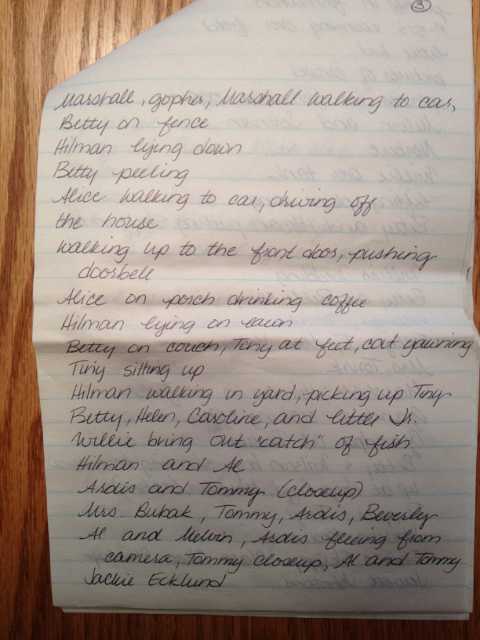 3
Marshall, gopher, Marshall walking to car,
Betty on fence
Hilman lying down
Betty peeling
Alice walking to car, driving off
the house
walking up to the front door, pushing
doorbell
Alice on porch drinking coffee
Hilman lying on lawn
Betty on couch, Tiny at feet, cat yawning
Tiny sitting up
Hilman walking in yard, picking up Tiny
Betty, Helen, Caroline, and little Jr.
Willie bring out "catch" of fish
Hilman and Al
Ardis and Tommy (closeup)
Mrs Bubak, Tommy, Ardis, Beverly
Al and Melvin, Ardis fleeing from
camera, Tommy closeup, Al and Tommy
Jackie Ecklund